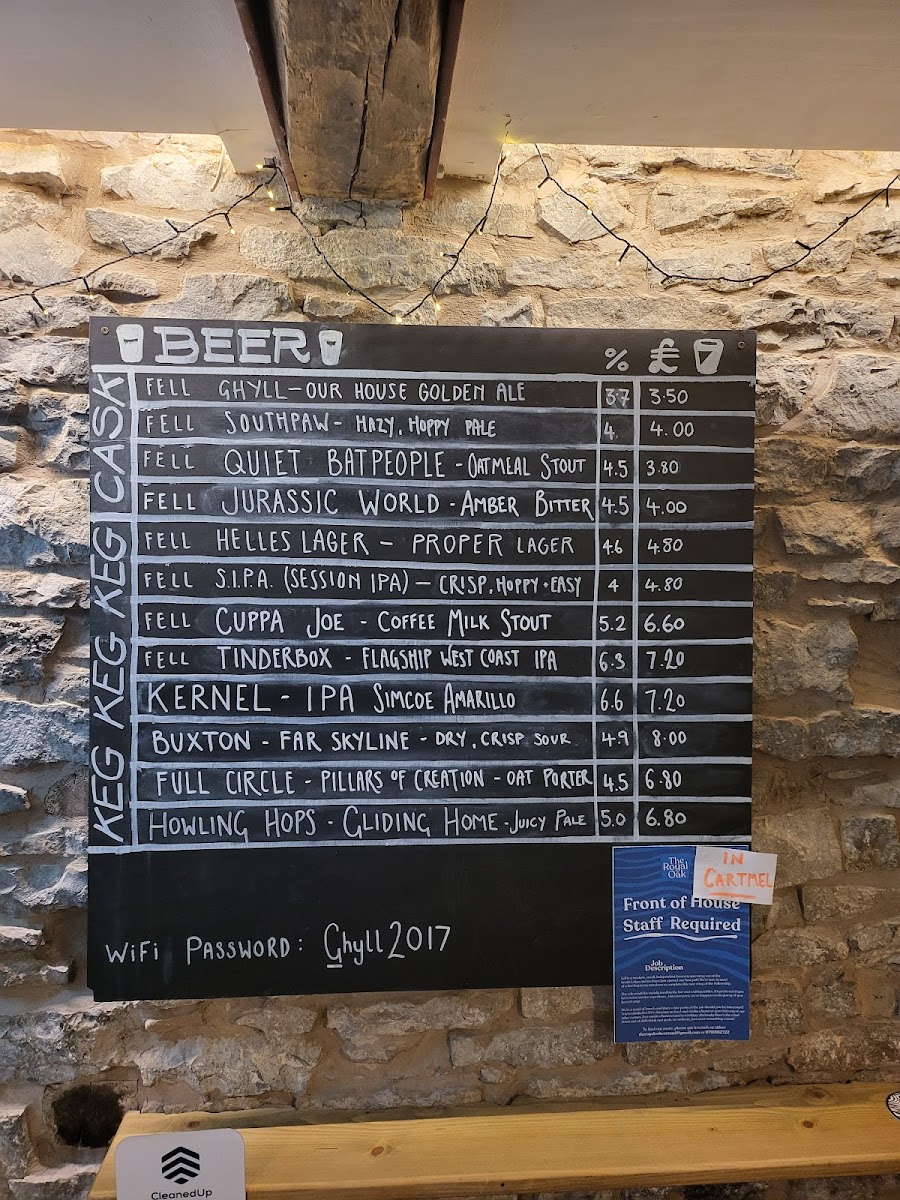 BEER % £
CASK
KEG KEG KEG KEG
FELL GHYLL - OUR HOUSE GOLDEN ALE 3.7 3.50
FELL SOUTHPAW - HAZY, HOPPY PALE 4 4.00
FELL QUIET BATPEOPLE - OATMEAL STOUT 4.5 3.80
FELL JURASSIC WORLD - AMBER BITTER 4.5 4.00
FELL HELLES LAGER - PROPER LAGER 4.6 4.80
FELL S.I.P.A. (SESSION IPA) - CRISP, HOPPY + EASY 4 4.80
FELL CUPPA JOE - COFFEE MILK STOUT 5.2 6.60
FELL TINDERBOX - FLAGSHIP WEST COAST IPA 6.3 7.20
KERNEL - IPA SIMCOE AMARILLO 6.6 7.20
BUXTON - FAR SKYLINE - DRY, CRISP SOUR 4.9 8.00
FULL CIRCLE - PILLARS OF CREATION - OAT PORTER 4.5 6.80
HOWLING HOPS - GLIDING HOME - JUICY PALE 5.0 6.80
WIFI PASSWORD: Ghyll2017
The Royal Oak
IN CARTMEL
Front of House
Staff Required
Job Description
CleanedUp